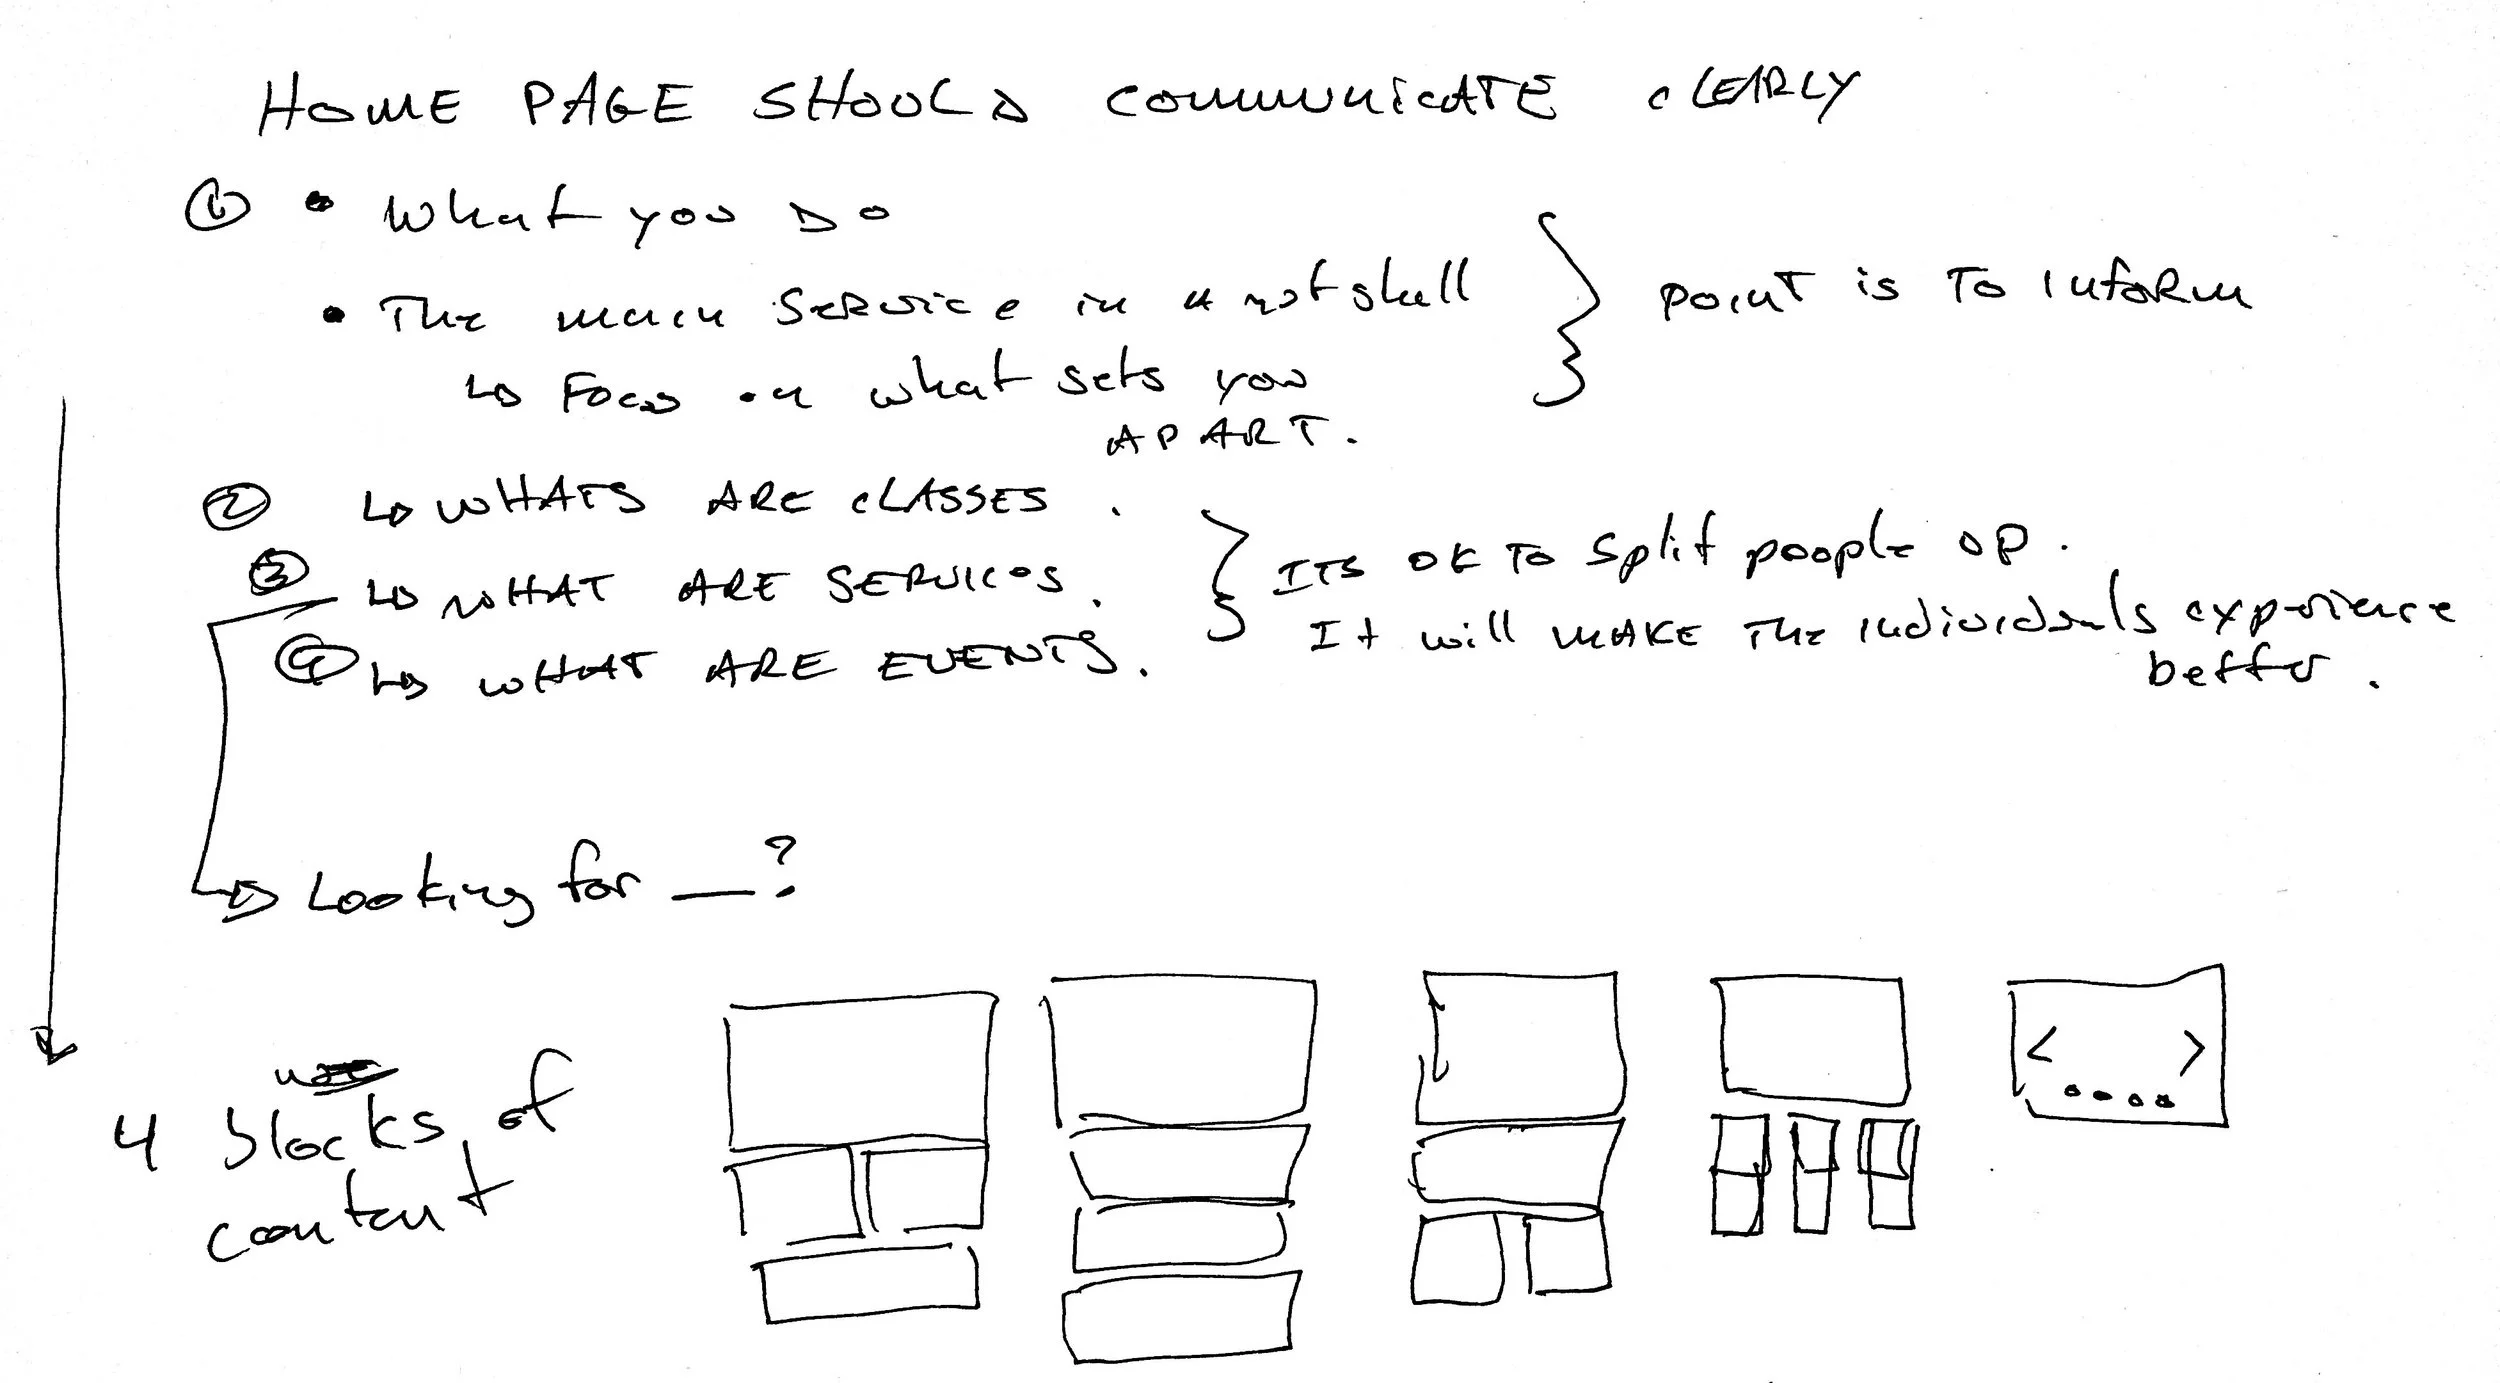 HOME PAGE SHOULD COMMUNICATE CLEARLY
① • What you DO
• The main Service in a nutshell } point is To inform
↳ Focus on what sets you
APART.
② ↳ WHATS ARE CLASSES.
③ ↳ WHAT ARE SERVICES. } ITS OK TO Split people UP.
④ ↳ WHAT ARE EVENTS. It will MAKE The individuals experience
better.
↳ Looking for __?
4 blocks of
content
< >